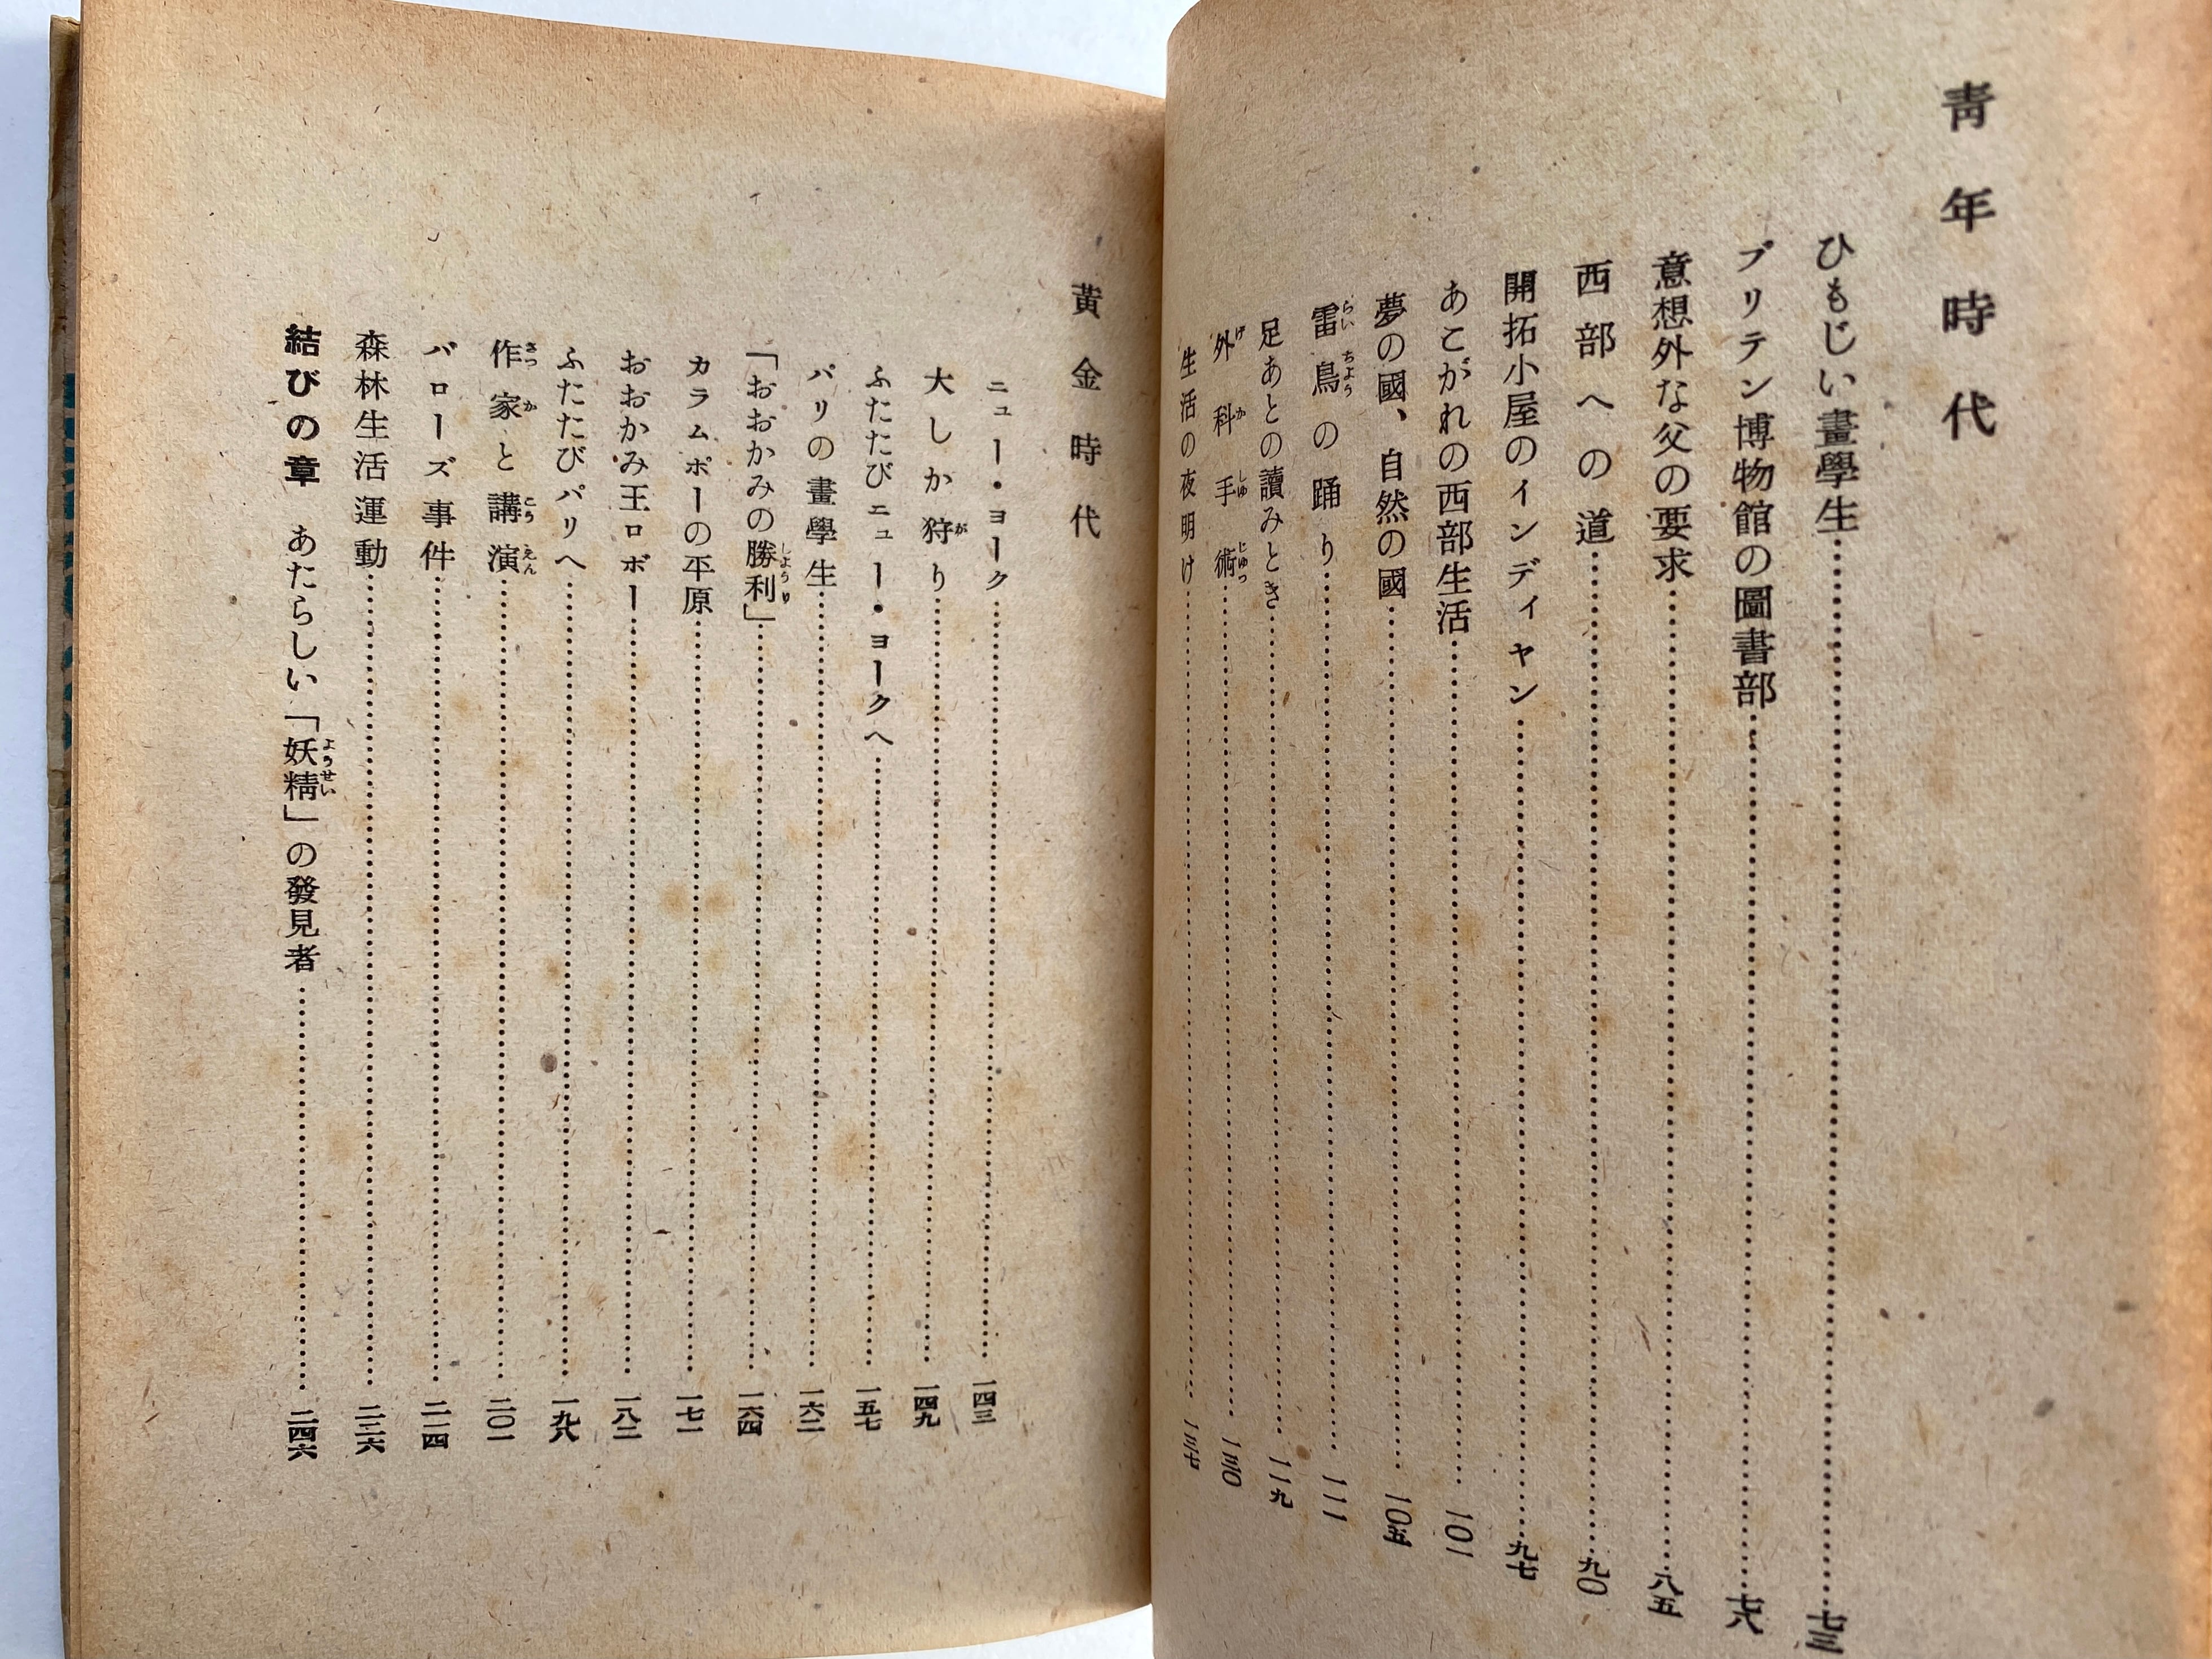 靑年時代
ひもじい畫學生……七三
ブリテン博物館の圖書部……七六
意想外な父の要求……八五
西部への道……九〇
開拓小屋のインディヤン……九七
あこがれの西部生活……一〇一
夢の國、自然の國……一〇五
雷鳥の踊り……一一一
足あとの讀みとき……一一九
外科手術……一三〇
生活の夜明け……一三七
黃金時代
ニュー・ヨーク……一四三
大しか狩り……一四九
ふたたびニュー・ヨークへ……一五七
パリの畫學生……一六二
「おおかみの勝利」……一六四
カラムポーの平原……一七一
おおかみ王ロボー……一八二
ふたたびパリへ……一九六
作家と講演……二〇一
バローズ事件……二一四
森林生活運動……二二六
結びの章　あたらしい「妖精」の發見者……二四六